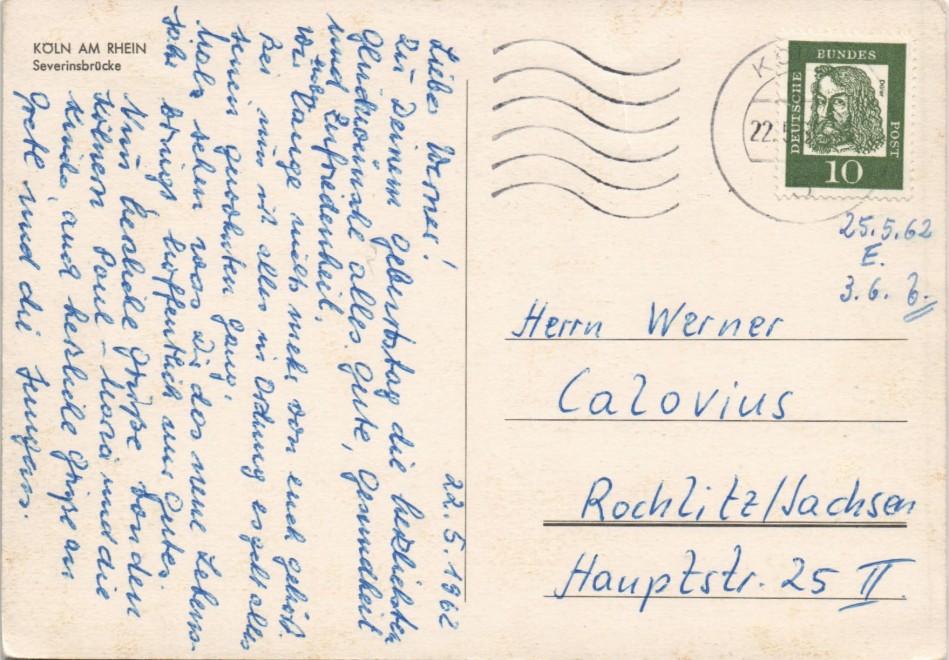 KÖLN AM RHEIN
Severinsbrücke
22. 5. 1962
Liebe Werner!
Zu Deinem Geburtstag die herzlichsten
Glückwünsche alles Gute, Gesundheit
und Zufriedenheit.
Wir lange nichts mehr von euch gehört.
haben
Bei uns ist alles in Ordnung es geht alles
seinen gewohnten Gang.
Mals sehen was Dir das neue Lebens-
jahr bringt hoffentlich nur Gutes
Nun herzliche Grüße von den
Kölnern Paul - Maria und die
Kinder auch herzliche Grüße an
und die Jungens.
DEUTSCHE BUNDES POST
Dürer
10
K
22.5
25.5.62
E.
3.6.
Herrn Werner
Calovius
Rochlitz/Sachsen
Hauptstr. 25 II